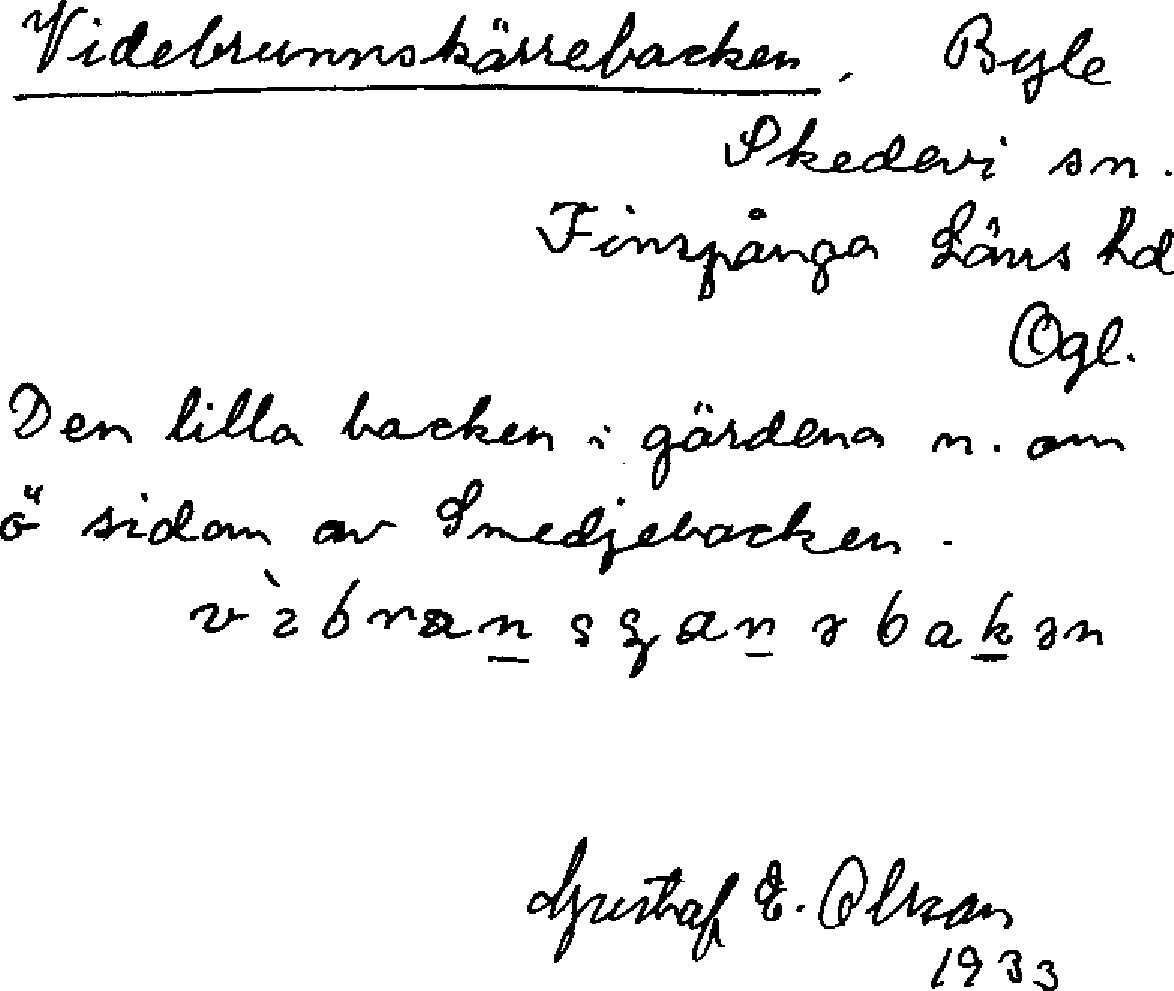 Videbrunnskärrebacken, Byle
Skedevi sn.
Finspånga Läns hd
Ögl.
Den lilla backen i gärdena n. om
ö sidan av Smedjebacken.
Gustaf E. Olsson
1933